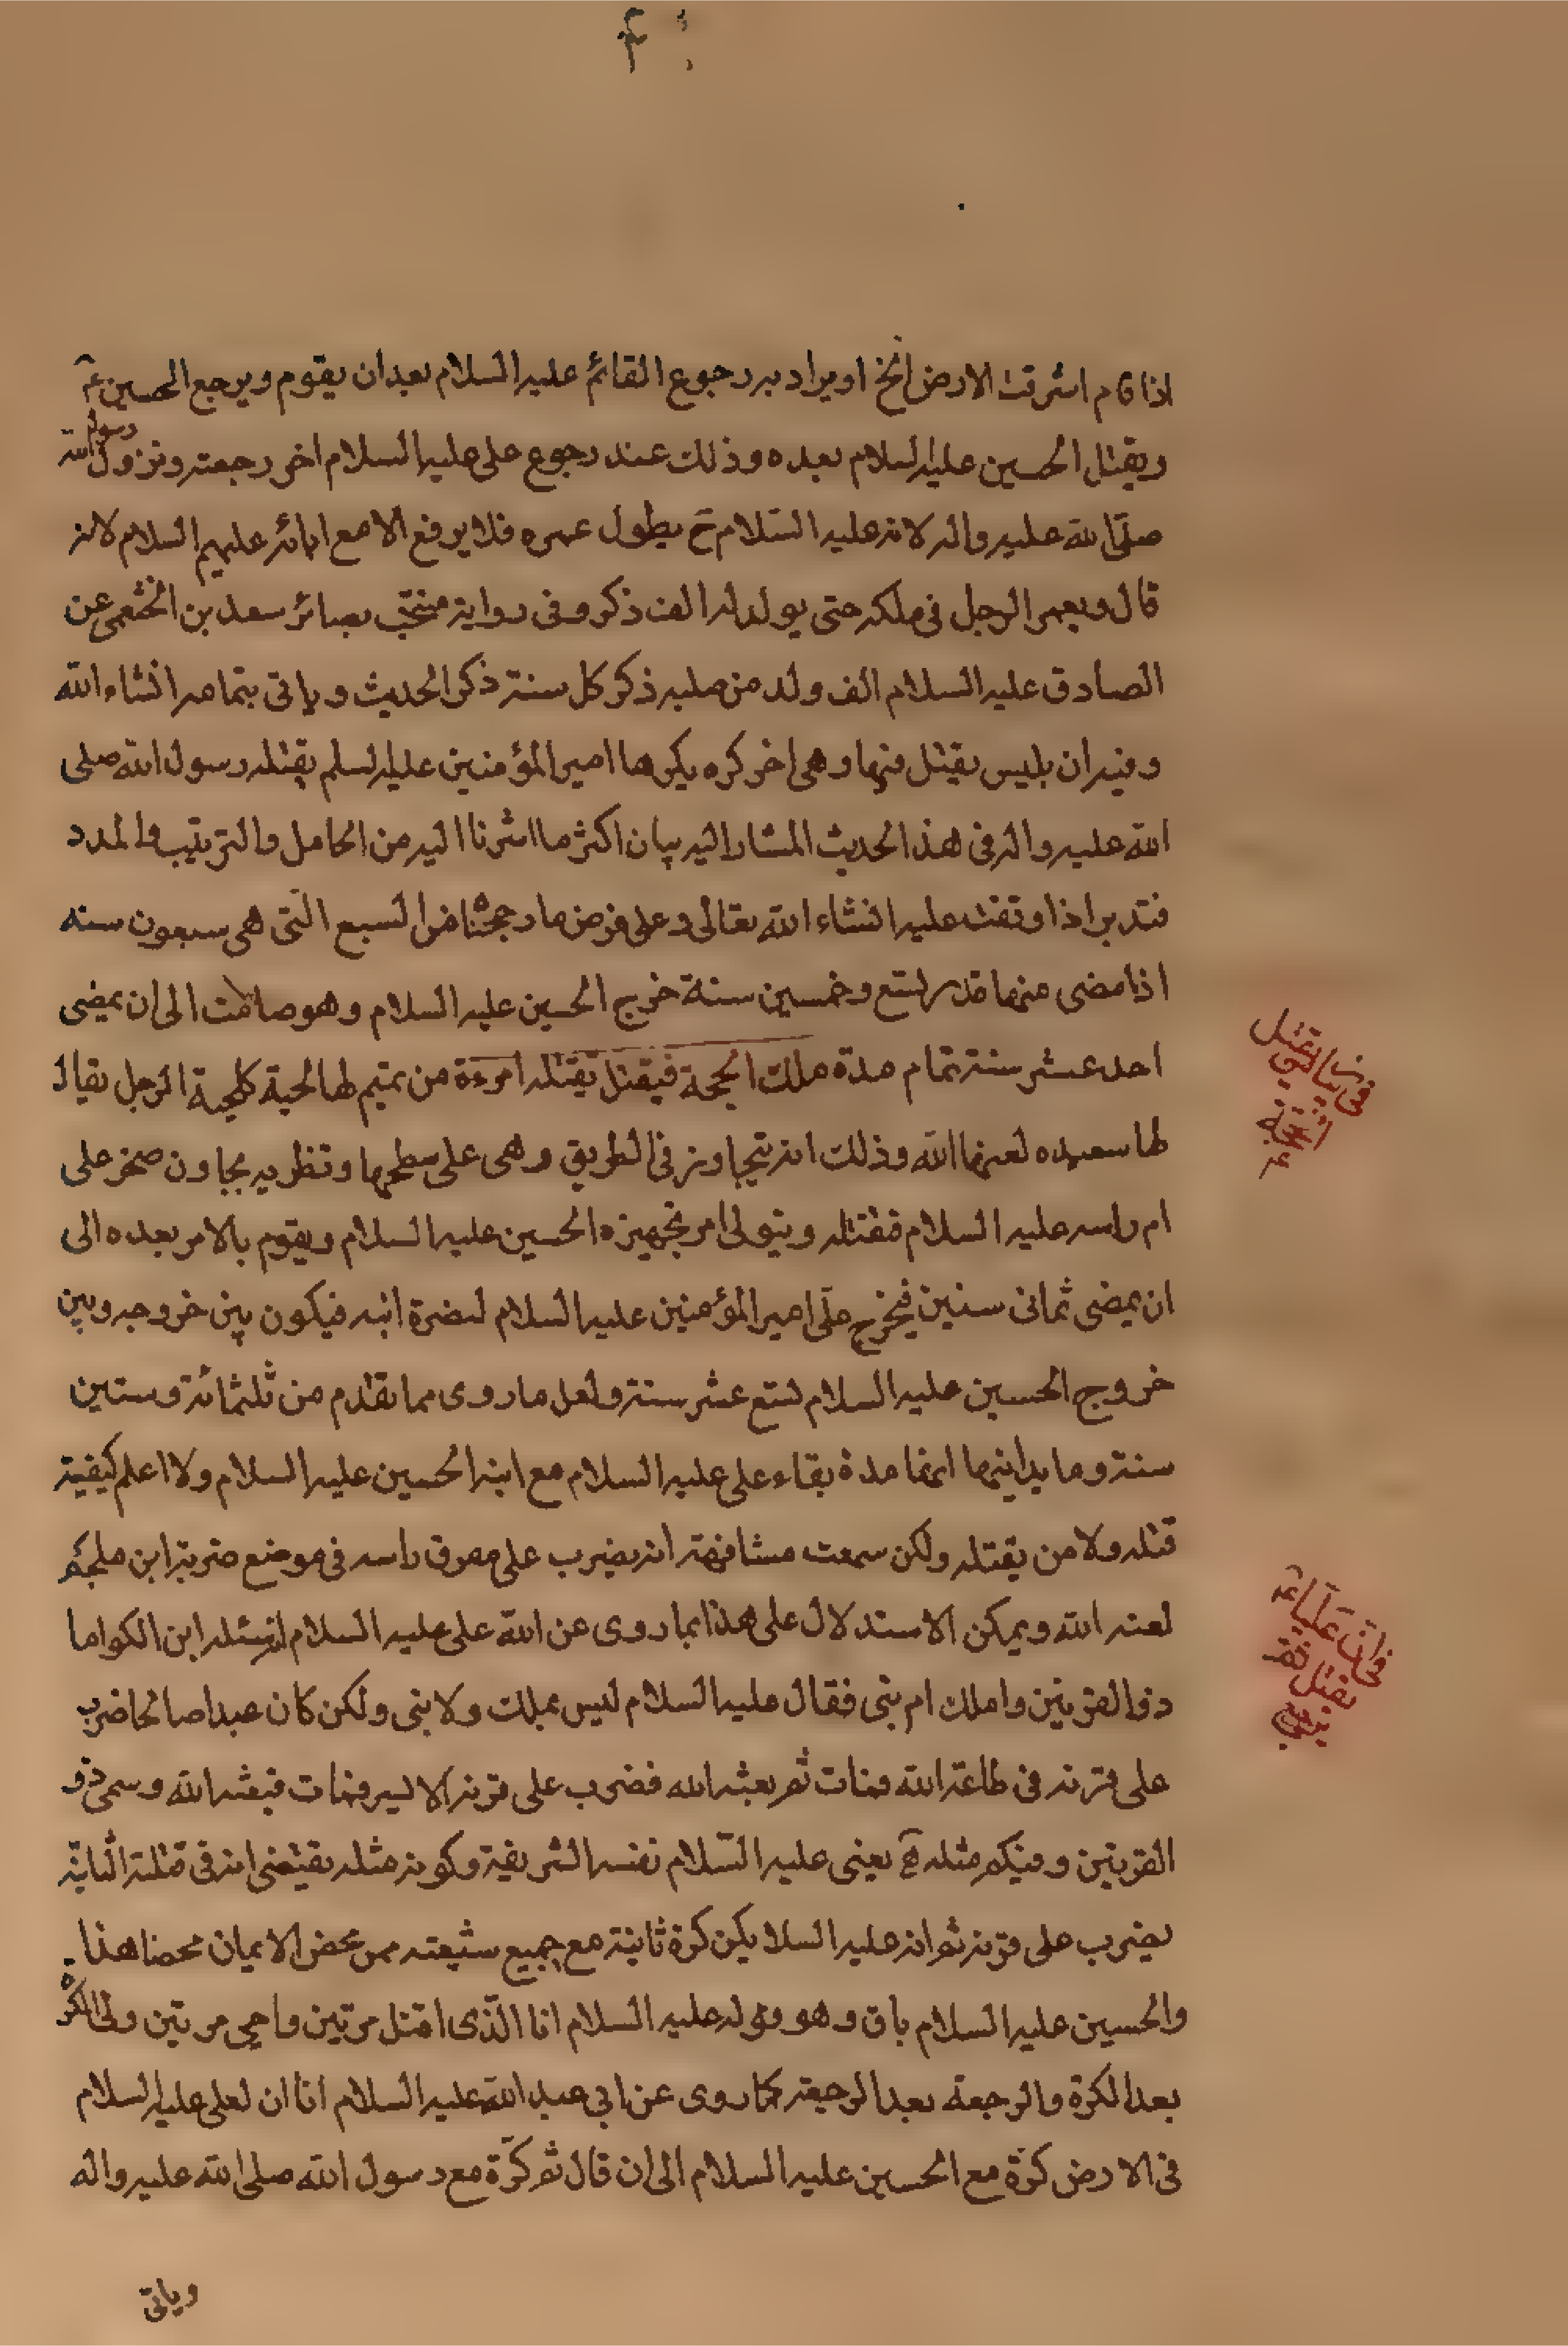 اذا قام اشرقت الارض الخ او يراد به رجوع القائم عليه السلام بعد ان يقوم ويرجع الحسين ع
ويقتل الحسين عليه السلام بعده وذلك عند رجوع على عليه السلام اخر رجعته ونزول رسول الله
صلى الله عليه واله لانه عليه السلام ح يطول عمره فلا يرفع الا مع ابائه عليهم السلام لانه
قال ويعمر الرجل فى ملكه حتى يولد له الف ذكر وفى رواية منتخب بصائر سعد بن الخثعمى عن
الصادق عليه السلام الف ولد من صلبه ذكر كل سنة ذكر الحديث وياتى بتمامه انشاء الله
وفيه ان بليس يقتل فيها وهى اخر كره يكرها امير المؤمنين عليه السلم يقتله رسول الله صلى
الله عليه واله فى هذا الحديث المشار اليه بيان اكثر ما اشرنا اليه من الحامل والترتيب والمدد
فتدبر اذا وقفت عليه انشاء الله تعالى وعلى فرض ما رجحناه من السبع التى هى سبعون سنه
اذا مضى منها قدر تسع وخمسين سنة خرج الحسين عليه السلام وهو صامت الى ان يمضى
احد عشر سنة تمام مدة ملك الحجة فيقتل يقتله امرءة من تميم لها لحية كلحية الرجل يقال
لها سعيده لعنها الله وذلك انه يتجاوز فى الطريق وهى على سطحها وتظربه بجاون صخر على
ام راسه عليه السلام فقتله ويتولى امر تجهيزه الحسين عليه السلام ويقوم بالامر بعده الى
ان يمضى ثمانى سنين فيخرج على امير المؤمنين عليه السلام لنصرة ابنه فيكون بين خروجه وبين
خروج الحسين عليه السلام تسع عشر سنة ولعل ما روى مما تقدم من ثلثمائة وستين
سنة وما يدانيها انها مدة بقاء على عليه السلام مع ابنه الحسين عليه السلام ولا اعلم كيفية
قتله ولا من يقتله ولكن سمعت مشافهة انه يضرب على مفرق راسه فى موضع ضربة ابن ملجم
لعنه الله ويمكن الاستدلال على هذا بما روى عن الله على عليه السلام انه سئله ابن الكوا ما
ذو القرنين واملك ام نبى فقال عليه السلام ليس بملك ولا نبى ولكن كان عبدا صالحا ضرب
على قرنه فى طاعة الله فمات ثم بعثه الله فضرب على قرنه الايسر فمات فبعثه الله وسمى ذو
القرنين وفيكم مثله يعنى عليه السلام نفسه الشريفة وكونه مثله يقتضى انه فى قتلته الثانية
يضرب على قرنه ثم انه عليه السلا يكن كرة ثانية مع جميع شيعته ممن محض الايمان محضا هذا
والحسين عليه السلام باق وهو قوله عليه السلام انا الذى اقتل مرتين واحيى مرتين ولى الكره
بعد الكرة والرجعة بعد الرجعة كما روى عن ابى عبد الله عليه السلام انا ان لعلى عليه السلام
فى الارض كرة مع الحسين عليه السلام الى ان قال ثم كرة مع رسول الله صلى الله عليه واله
وياتى